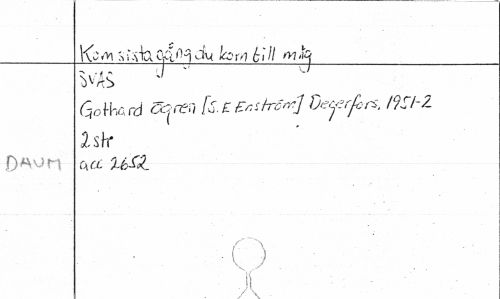 Kom sista gång du kom till mig
SVAS
Gothard Ögren [S.E Enström] Degerfors, 1951-2
2 str
DAUM acc 2652